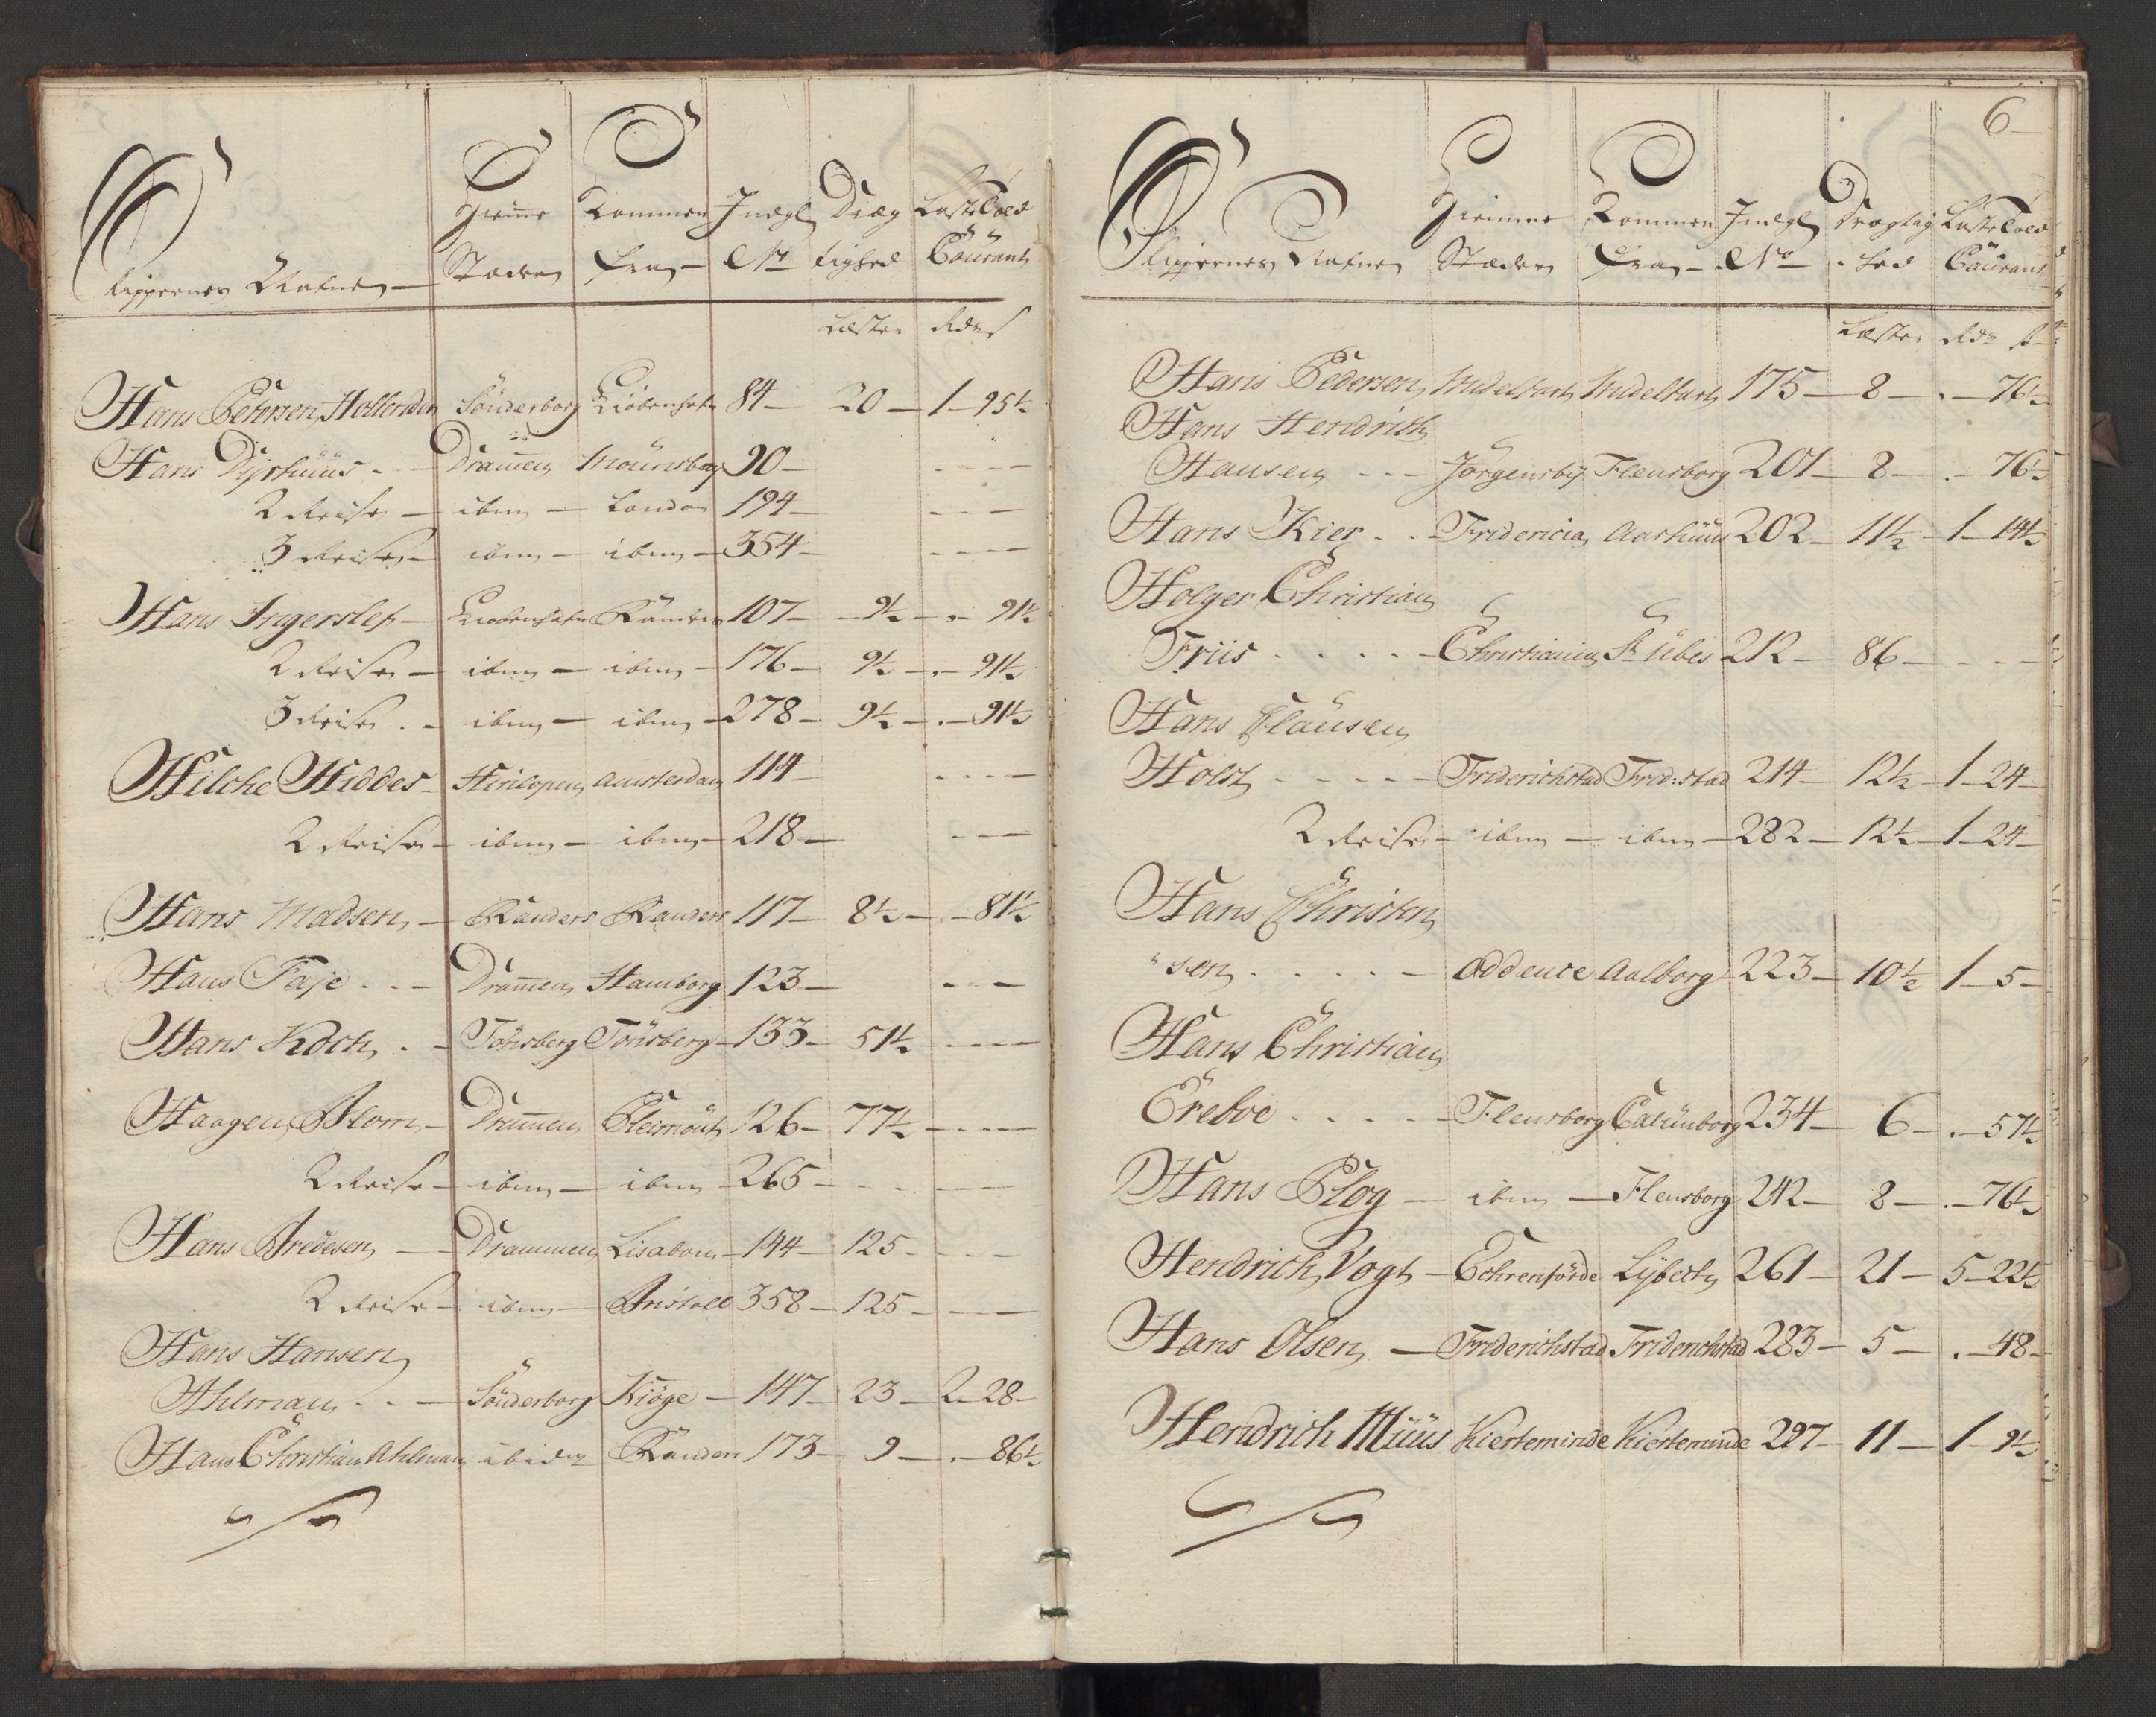 Skippernes Nafne Hiemme Stæder Kommen Fra Indgl No Dræg tighed Læste Told Courant
Læster Rdr s
Hans Petersen Hollender Sönderborg Kiöbenhafn 84 20 1 95½
Hans Dyrhuus Dramen 90
2 Reise ibm London 194
3 Reise ibm ibm 354
Hans Ingerslef Kiobenhafn Randers 107 9½ 91½
2 Reise ibm ibm 176 9½ 91½
3 Reise ibm ibm 278 9½ 91½
Hilche Hiddes Hinlopen Amsterdam 114
2 Reise ibm ibm 218
Hans Madsen Randers Randers 117 8½ 81½
Hans Faje Dramen Hamborg 123
Hans Koch Tönsberg Tönsberg 133 51½
Haagen Blom Dramen Pleimouth 126 77½
2 Reise ibm ibm 265
Hans Bredesen Drammen Lisabon 144 125
2 Reise ibm Bristoll 358 125
Hans Hansen
Ahlman Sönderborg Kiöge 147 23 2 28
Hans Christian Ahlman ibidm Randers 173 9 86½
6
Skippernes Nafne Hiemme Stæder Kommen Fra Indgl No Drægtig hed Læste Told Courant
Læster Rdr s
Hans Pedersen Midelfart Midelfart 175 8 76½
Hans Hendrich
Hansen Jörgensbÿ Flensborg 201 8 76½
Hans Kier Fridericia Aarhuus 202 11½ 1 14½
Holger Christian
Friis Christiania St Ubes 212 86
Hans Clausen
Holst Friderichstad Frid:stad 214 12½ 1 24
2 Reise ibm ibm 282 12½ 1 24
Hans Christen
sen Oddence Aalborg 223 10½ 1 5
Hans Christian
Ereboe Flensborg Calünborg 234 6 57½
Hans Plog ibm Flensborg 242 8 76½
Hendrich Vogt Echrenförde Lÿbech 261 21 5 22½
Hans Olsen Friderichstad Friderichstad 283 5 48
Hendrich Müüs Kierteminde Kierteminde 297 11 1 9½